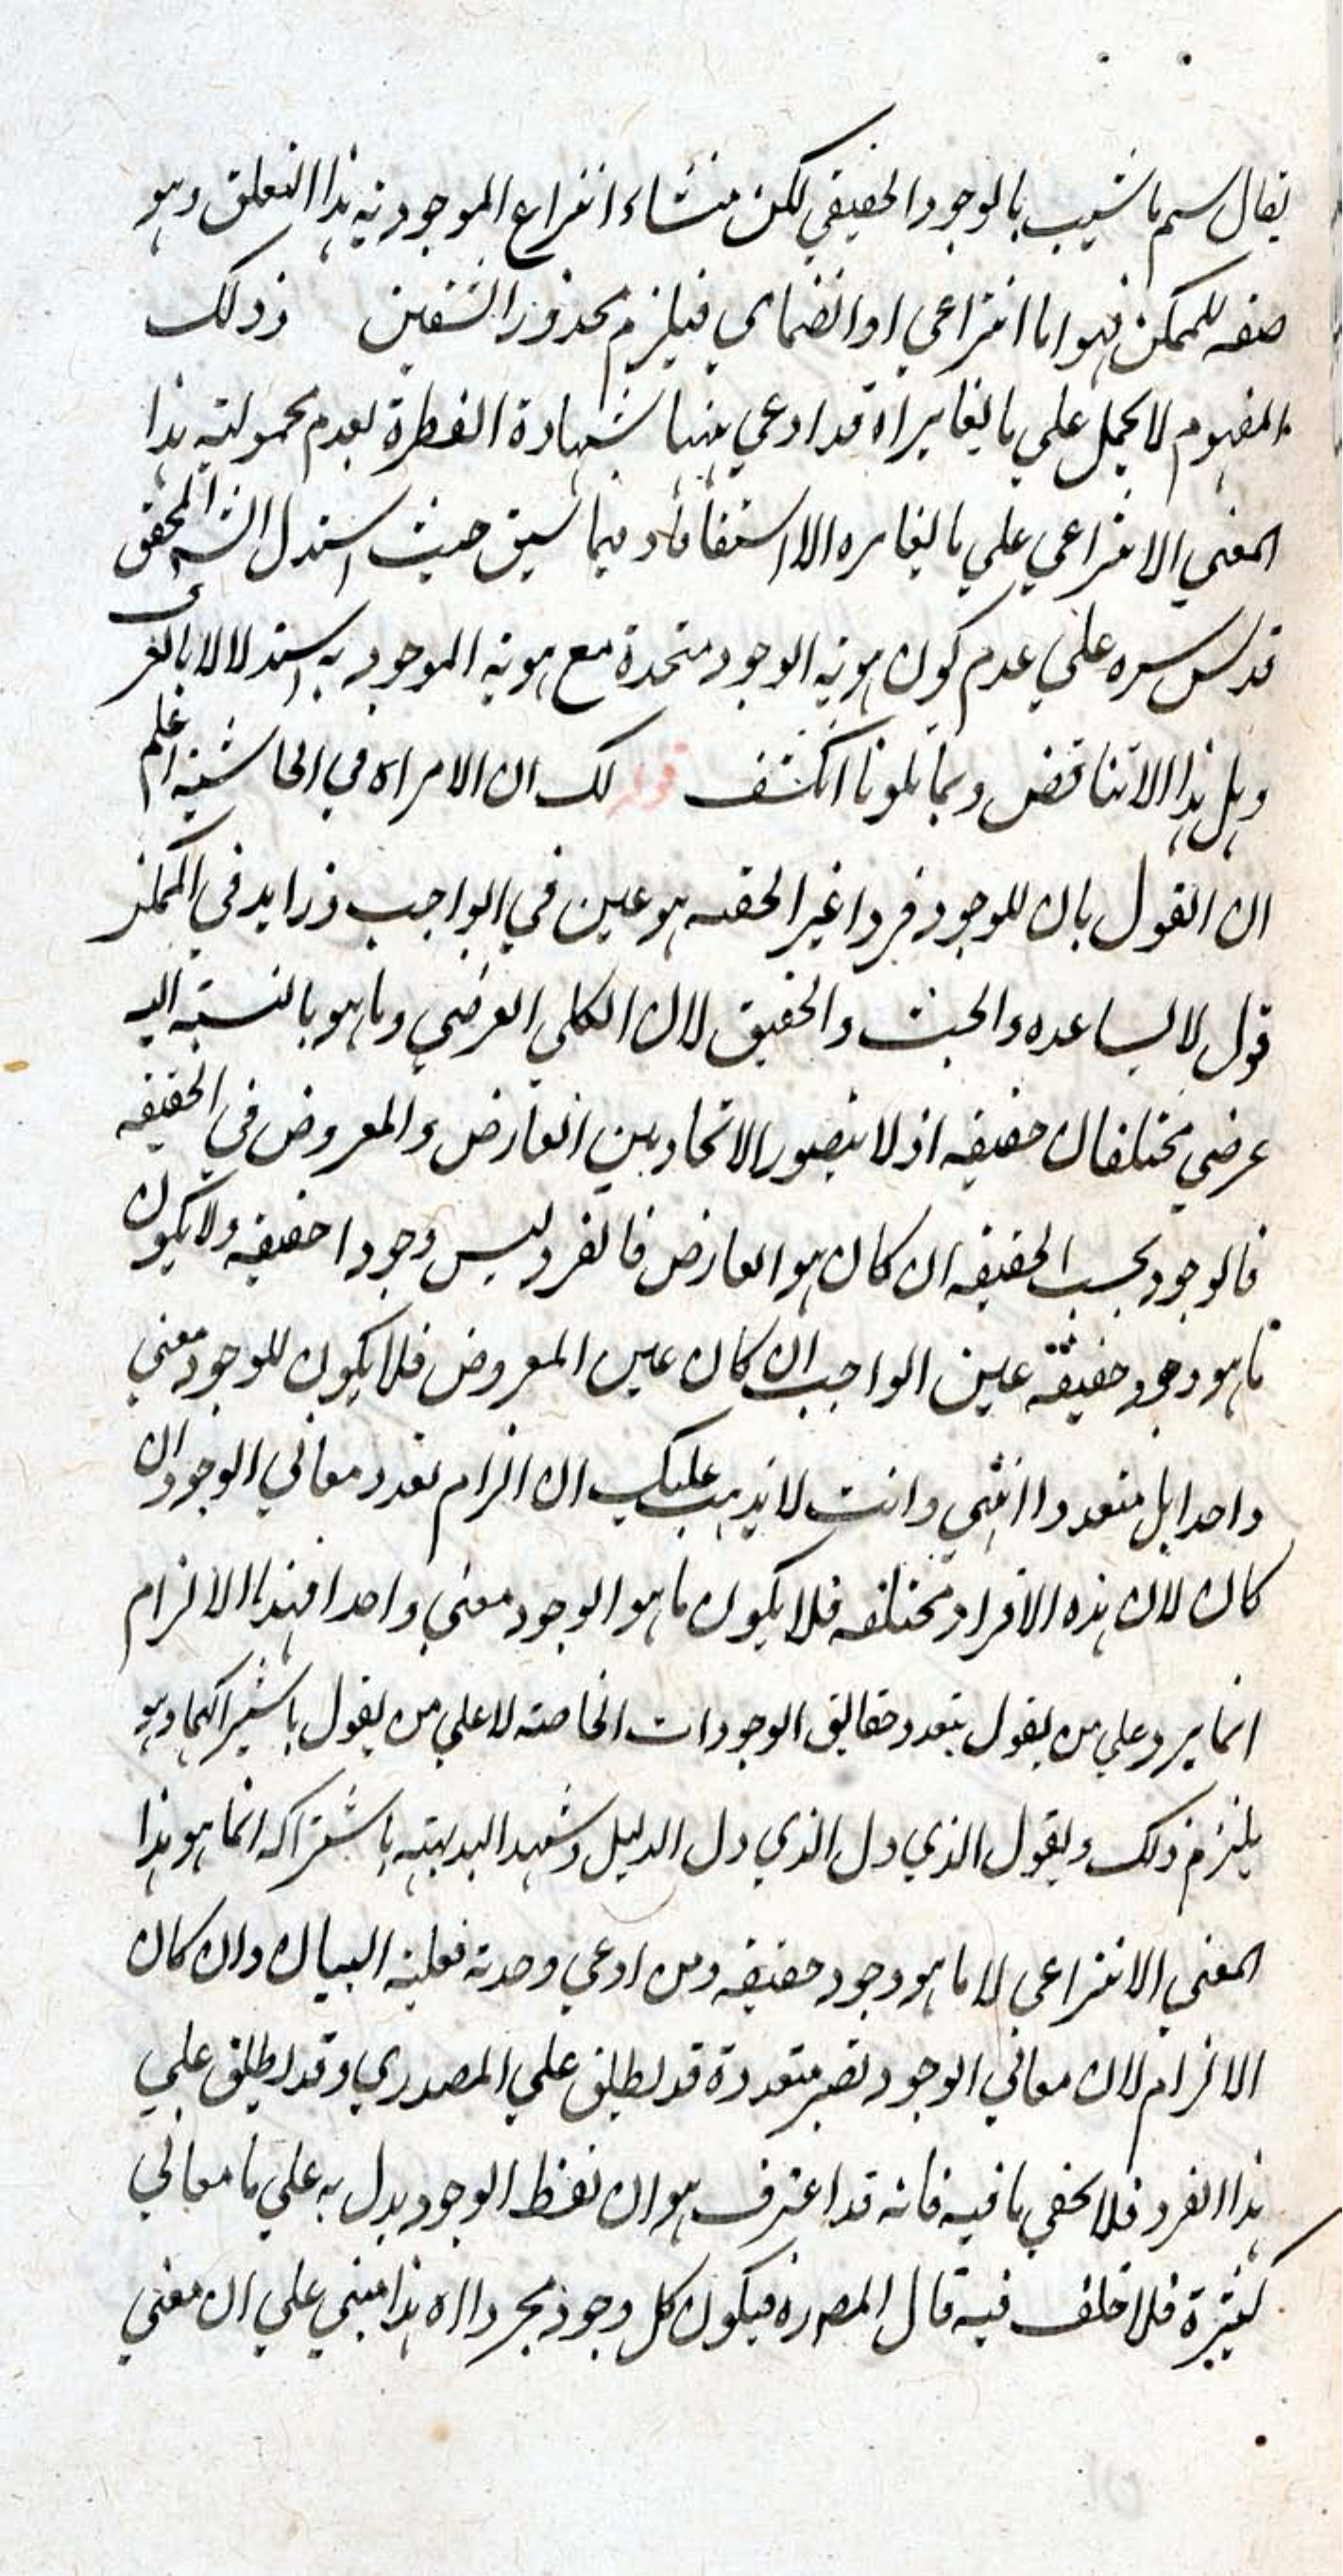 يقال سم ما شيت بالوجود الحقيقي لكن منشاء انتزاع الموجودية هذا التعلق وهو
صفه للممكن فهو اما انتزاعي او انضمامي فيلزم محذور الشقين وذلك
المفهوم لا يحمل على ما يغايراه قد ادعي منها شهادة الفطرة بعدم محمولية هذا
المعني الانتزاعي علي ما يغايره الا اشتقاقا وفيما سبق حيث استدل الش المحقق
قدس سره علي عدم كون هوية الوجود متحدة مع هوية الموجود به استدلالا بالغر
وهل هذا الا تناقض وبما تلونا انكشف قوله لك ان الامر اه في الحاشية اعلم
ان القول بان للوجود فردا غير الحصه هو عين في الواجب وزايد في الممكن
قول لا يساعده والبحث والتحقيق لان الكلي العرضي وما هو بالنسبة اليه
عرضي مختلفان حقيقه اذ لا يتصور الاتحاد بين العارض والمعروض في الحقيقه
فالوجود بحسب الحقيقه ان كان هو العارض فالفرد ليس وجودا حقيقه ولا يكون
ما هو وجود حقيقة عين الواجب ان كان عين المعروض فلا يكون للوجود معني
واحدا بل متعددا انتهي وانت لا يذهب عليك ان الزام تعدد معاني الوجود ان
كان لان هذه الافراد مختلفه فلا يكون ما هو الوجود معني واحدا فهذا الالزام
انما يرد علي من يقول بتعدد حقايق الوجودات الخاصة لا علي من يقول باشتراكهما وهو
يلتزم ذلك ويقول الذي دل الذي دل الدليل وشهد البديهة باشتراكه انما هو هذا
المعني الانتزاعي لا ما هو وجود حقيقه ومن ادعي وحدته فعليه البيان وان كان
الالزام لان معاني الوجود تصير متعددة قد يطلق علي المصدري وقد يطلق علي
هذا الفرد فلا يخفي ما فيه فانه قد اعترف هو ان لفظ الوجود يدل به علي ما معاني
كثيرة فلا خلف فيه قال المص ره فيكون كل وجود مجردا اه هذا مبني علي ان معني